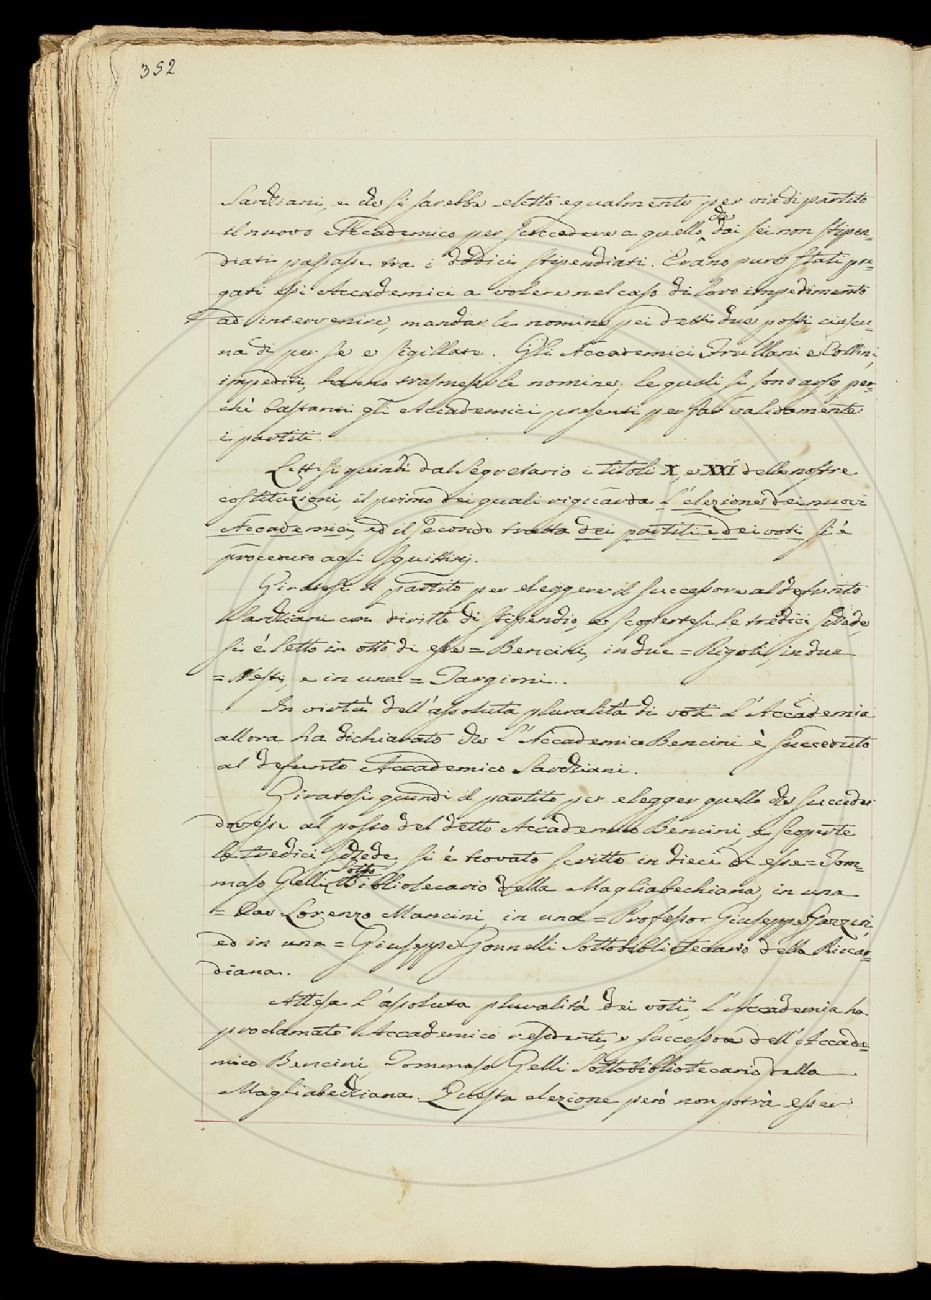 352
Sarchiani, e che si sarebbe eletto egualmente per via di partito
il nuovo Accademico per succedere a quello che dai sei non stipen=
diati passasse tra i dodici stipendiati. Erano pure stati pre=
gati essi Accademici a volere nel caso di loro impedimento
ad intervenire, mandar le nomine pei detti due posti ciascu=
na di per se e sigillate. Gli Accademici Frullani e Collini,
impediti, hanno trasmesse le nomine, le quali si sono arse, per=
chè bastanti gli Accademici presenti per far validamente
i partiti.
Lettisi quindi dal Segretario i titoli X, e XXI delle nostre
costituzioni, il primo dei quali riguarda l'elezione dei nuovi
Accademici, ed il secondo tratta dei partiti e dei voti si è
proceduto agli squittinj.
Giratosi il partito per eleggere il successore al defunto
Sarchiani con diritto di stipendio, e scopertesi le tredici schede,
si è letto in otto di esse = Bencini, in due = Rigoli, in due
= Nesti, e in una = Targioni.
In virtù dell'assoluta pluralità di voti l'Accademia
allora ha dichiarato che l'Accademico Bencini è succeduto
al defunto Accademico Sarchiani.
Giratosi quindi il partito per elegger quello che succeder
dovesse al posto del detto Accademico Bencini, e scoperte
le tredici schede si è trovato scritto in dieci di esse = Tom=
maso Gelli Sotto Bibliotecario della Magliabechiana, in una
= Cav. Lorenzo Mancini, in una = Professor Giuseppe Gazzeri,
ed in una = Giuseppe Gonnelli Sottobibliotecario della Riccar=
diana.
Attesa l'assoluta pluralità dei voti, l'Accademia ha
proclamato Accademico residente, e successore dell'Accade=
mico Bencini, Tommaso Gelli Sottobibliotecario della
Magliabechiana. Questa elezione però non potrà esser